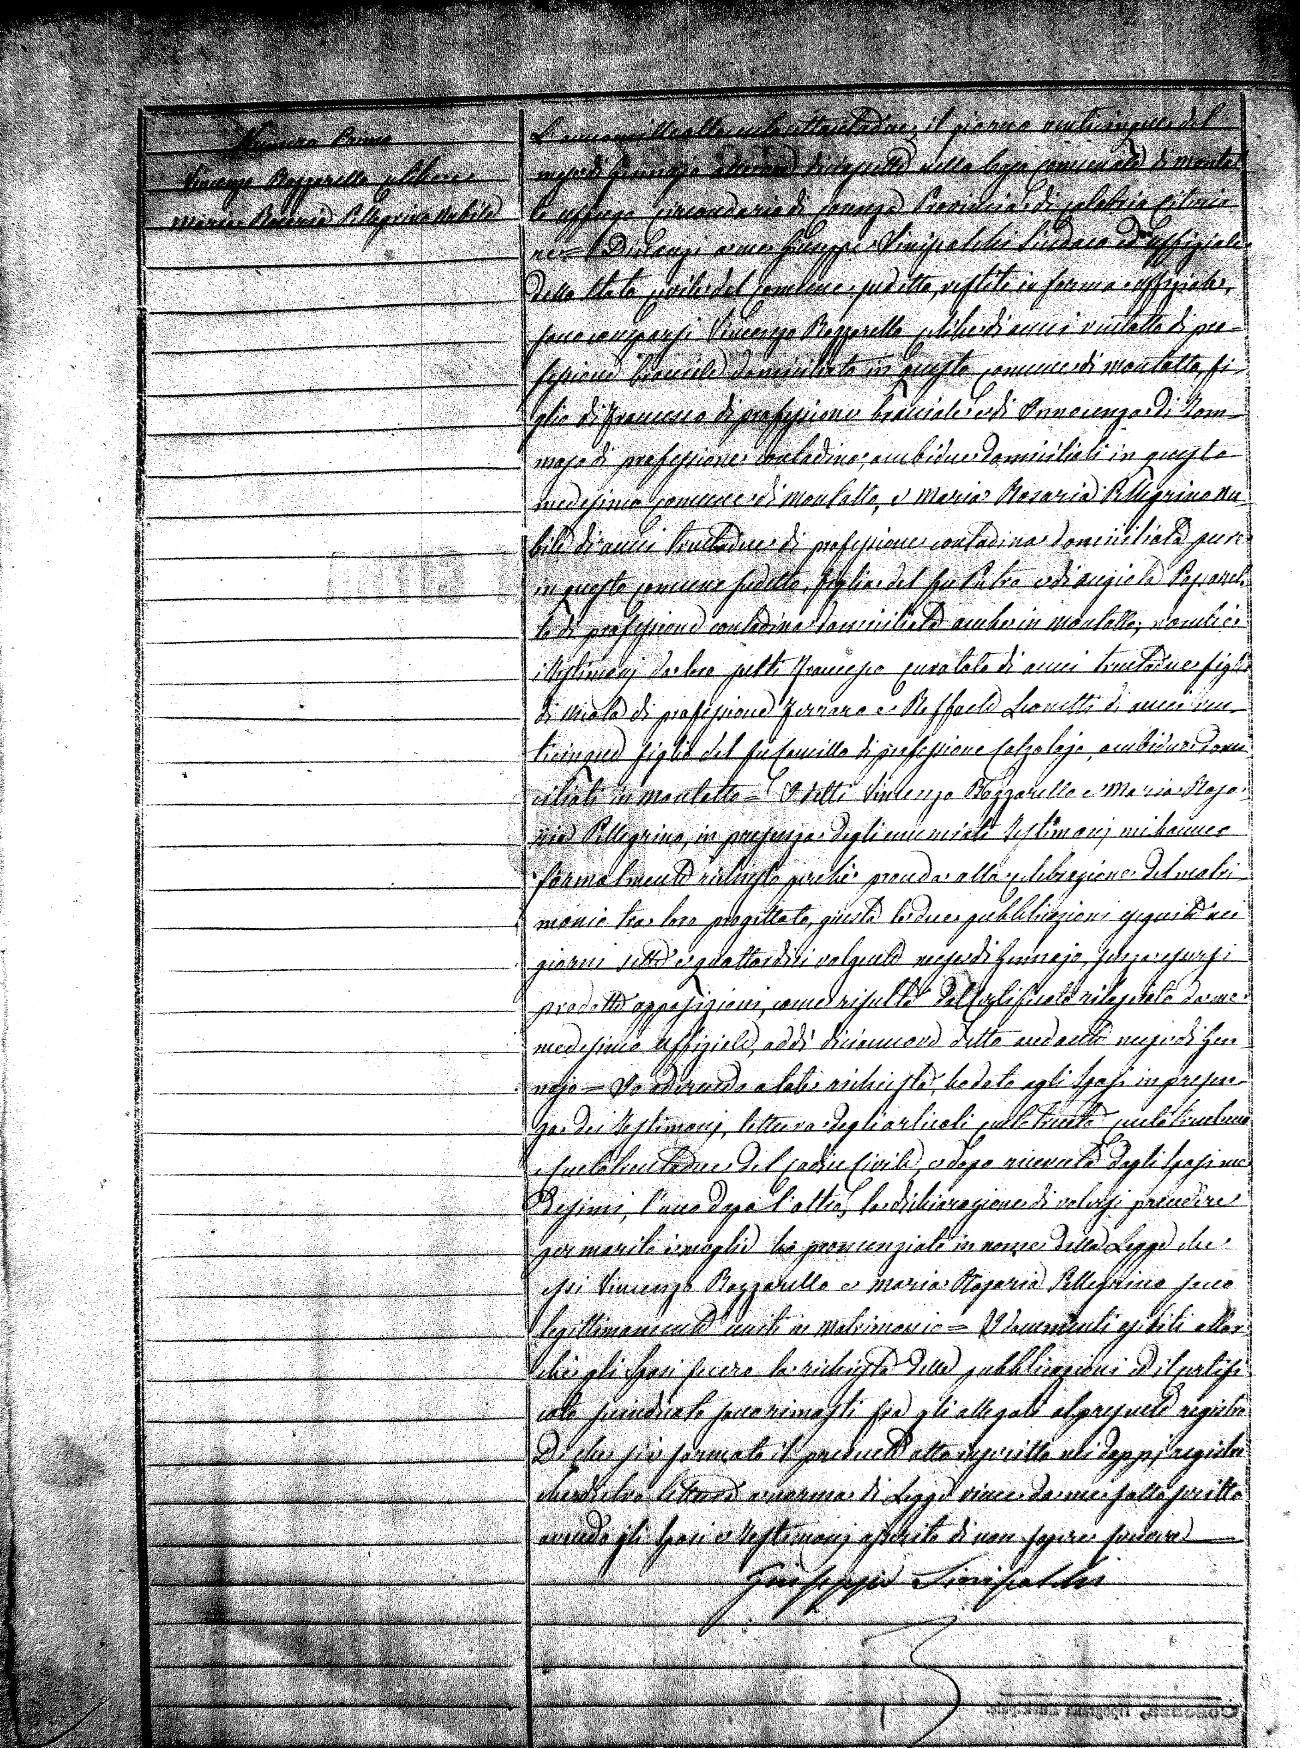 Numero Primo
Vincenzo Bozzarello celibe e
Maria Rosaria Pellegrino nubile
L'anno mille otto cento settantadue, il giorno venticinque del
mese di Gennajo nella casa comunale di Montal
to Uffugo circondario di Cosenza Provincia di Calabria Citerio
re = Dinanzi a me Giuseppe Sinipaldi Sindaco ed Uffiziale
dello Stato civile del comune sudetto, vestito in forma uffiziale,
sono comparsi Vincenzo Bozzarello celibe di anni ventotto di pro-
fessione bracciale domiciliato in questo comune di Montalto, fi-
glio di Francesco di professione bracciale e di Innocenza di Tom-
maso di professione contadina, ambidue domiciliati in questo
medesimo comune di Montalto, e Maria Rosaria Pellegrino nu-
bile di anni trentadue di professione contadina domiciliata pure
in questo comune sudetto, figlia del fu Pietro e di Angiola
di professione contadina domiciliata anche in Montalto;
testimonj da loro scelti Francesco di anni trentadue figlio
di professione Ferraro e Raffaele Leonetti di anni ven-
ticinque figlio del fu Camillo di professione Calzolajo, ambidue domi
ciliati in Montalto = I detti Vincenzo Bozzarello e Maria Rosa-
ria Pellegrino, in presenza degli enunciati Testimonj mi hanno
formalmente richiesto perchè proceda alla celebrazione del matri
monio tra loro progettato, giusta le due pubblicazioni eseguite nei
giorni sette e quattordici volgente mese di Gennajo, senza essersi
prodotte opposizioni, come risulta dal Certificato rilasciato da me
medesimo Uffiziale, addì diciannove detto andante mese di Gen
najo = Io aderendo a tale richiesta, ho dato agli sposi in presen-
za dei Testimonj, lettura degli articoli centotrenta centotrentuno
e centotrentadue del Codice Civile, e dopo ricevuta dagli sposi me
desimi, l'uno dopo l'altro, la dichiarazione di volersi prendere
per marito e moglie ho pronunziato in nome della Legge che
essi Vincenzo Bozzarello e Maria Rosaria Pellegrino sono
legittimamente uniti in matrimonio = I documenti esibiti allor
chè gli sposi fecero la richiesta delle pubblicazioni ed il certifi
cato sono rimasti fra gli allegati al presente registro
Di che si è formato il presente atto inscritto nei doppj registri
che dietro lettura a norma di Legge viene da me solo scritto
avendo gli sposi e Testimonj asserito di non sapere scrivere
Giuseppe Sinipaldi